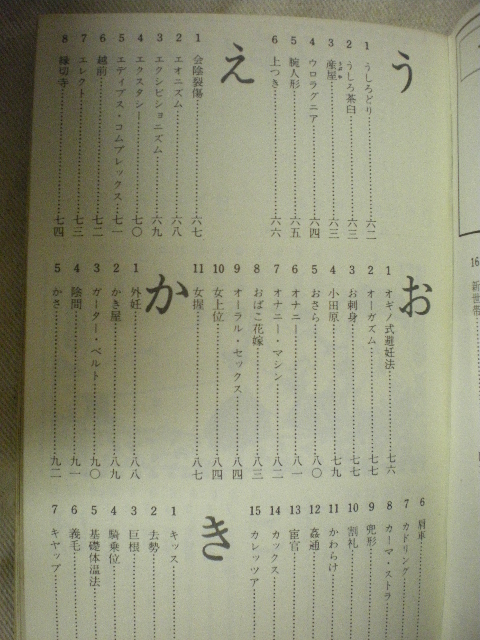 う
1 うしろどり 六二
2 うしろ茶臼 六三
3 産屋 六三
4 ウロラグニア 六四
5 腕人形 六五
6 上つき 六六
え
1 会陰裂傷 六七
2 エオニズム 六八
3 エクシビショニズム 六九
4 エクスタシー 七〇
5 エディプス・コムプレックス 七一
6 越前 七二
7 エレクト 七三
8 縁切寺 七四
お
1 オギノ式避妊法 七六
2 オーガズム 七七
3 お刺身 七七
4 小田原 七九
5 おさら 八〇
6 オナニー 八一
7 オナニー・マシン 八二
8 おぼこ花嫁 八三
9 オーラル・セックス 八四
10 女上位 八四
11 女握 八七
か
1 外妊 八八
2 かき屋 八九
3 ガーター・ベルト 九〇
4 陰間 九一
5 かさ 九二
6 肩車
7 カドリング
8 カーマ・ストラ
9 兜形
10 割礼
11 かわらけ
12 姦通
13 宦官
14 カックス
15 カレッツア
き
1 キッス
2 去勢
3 巨根
4 騎乗位
5 基礎体温法
6 義毛
7 キャップ
16